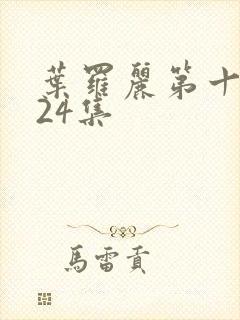 葉羅麗第十
24集
馬雷貢